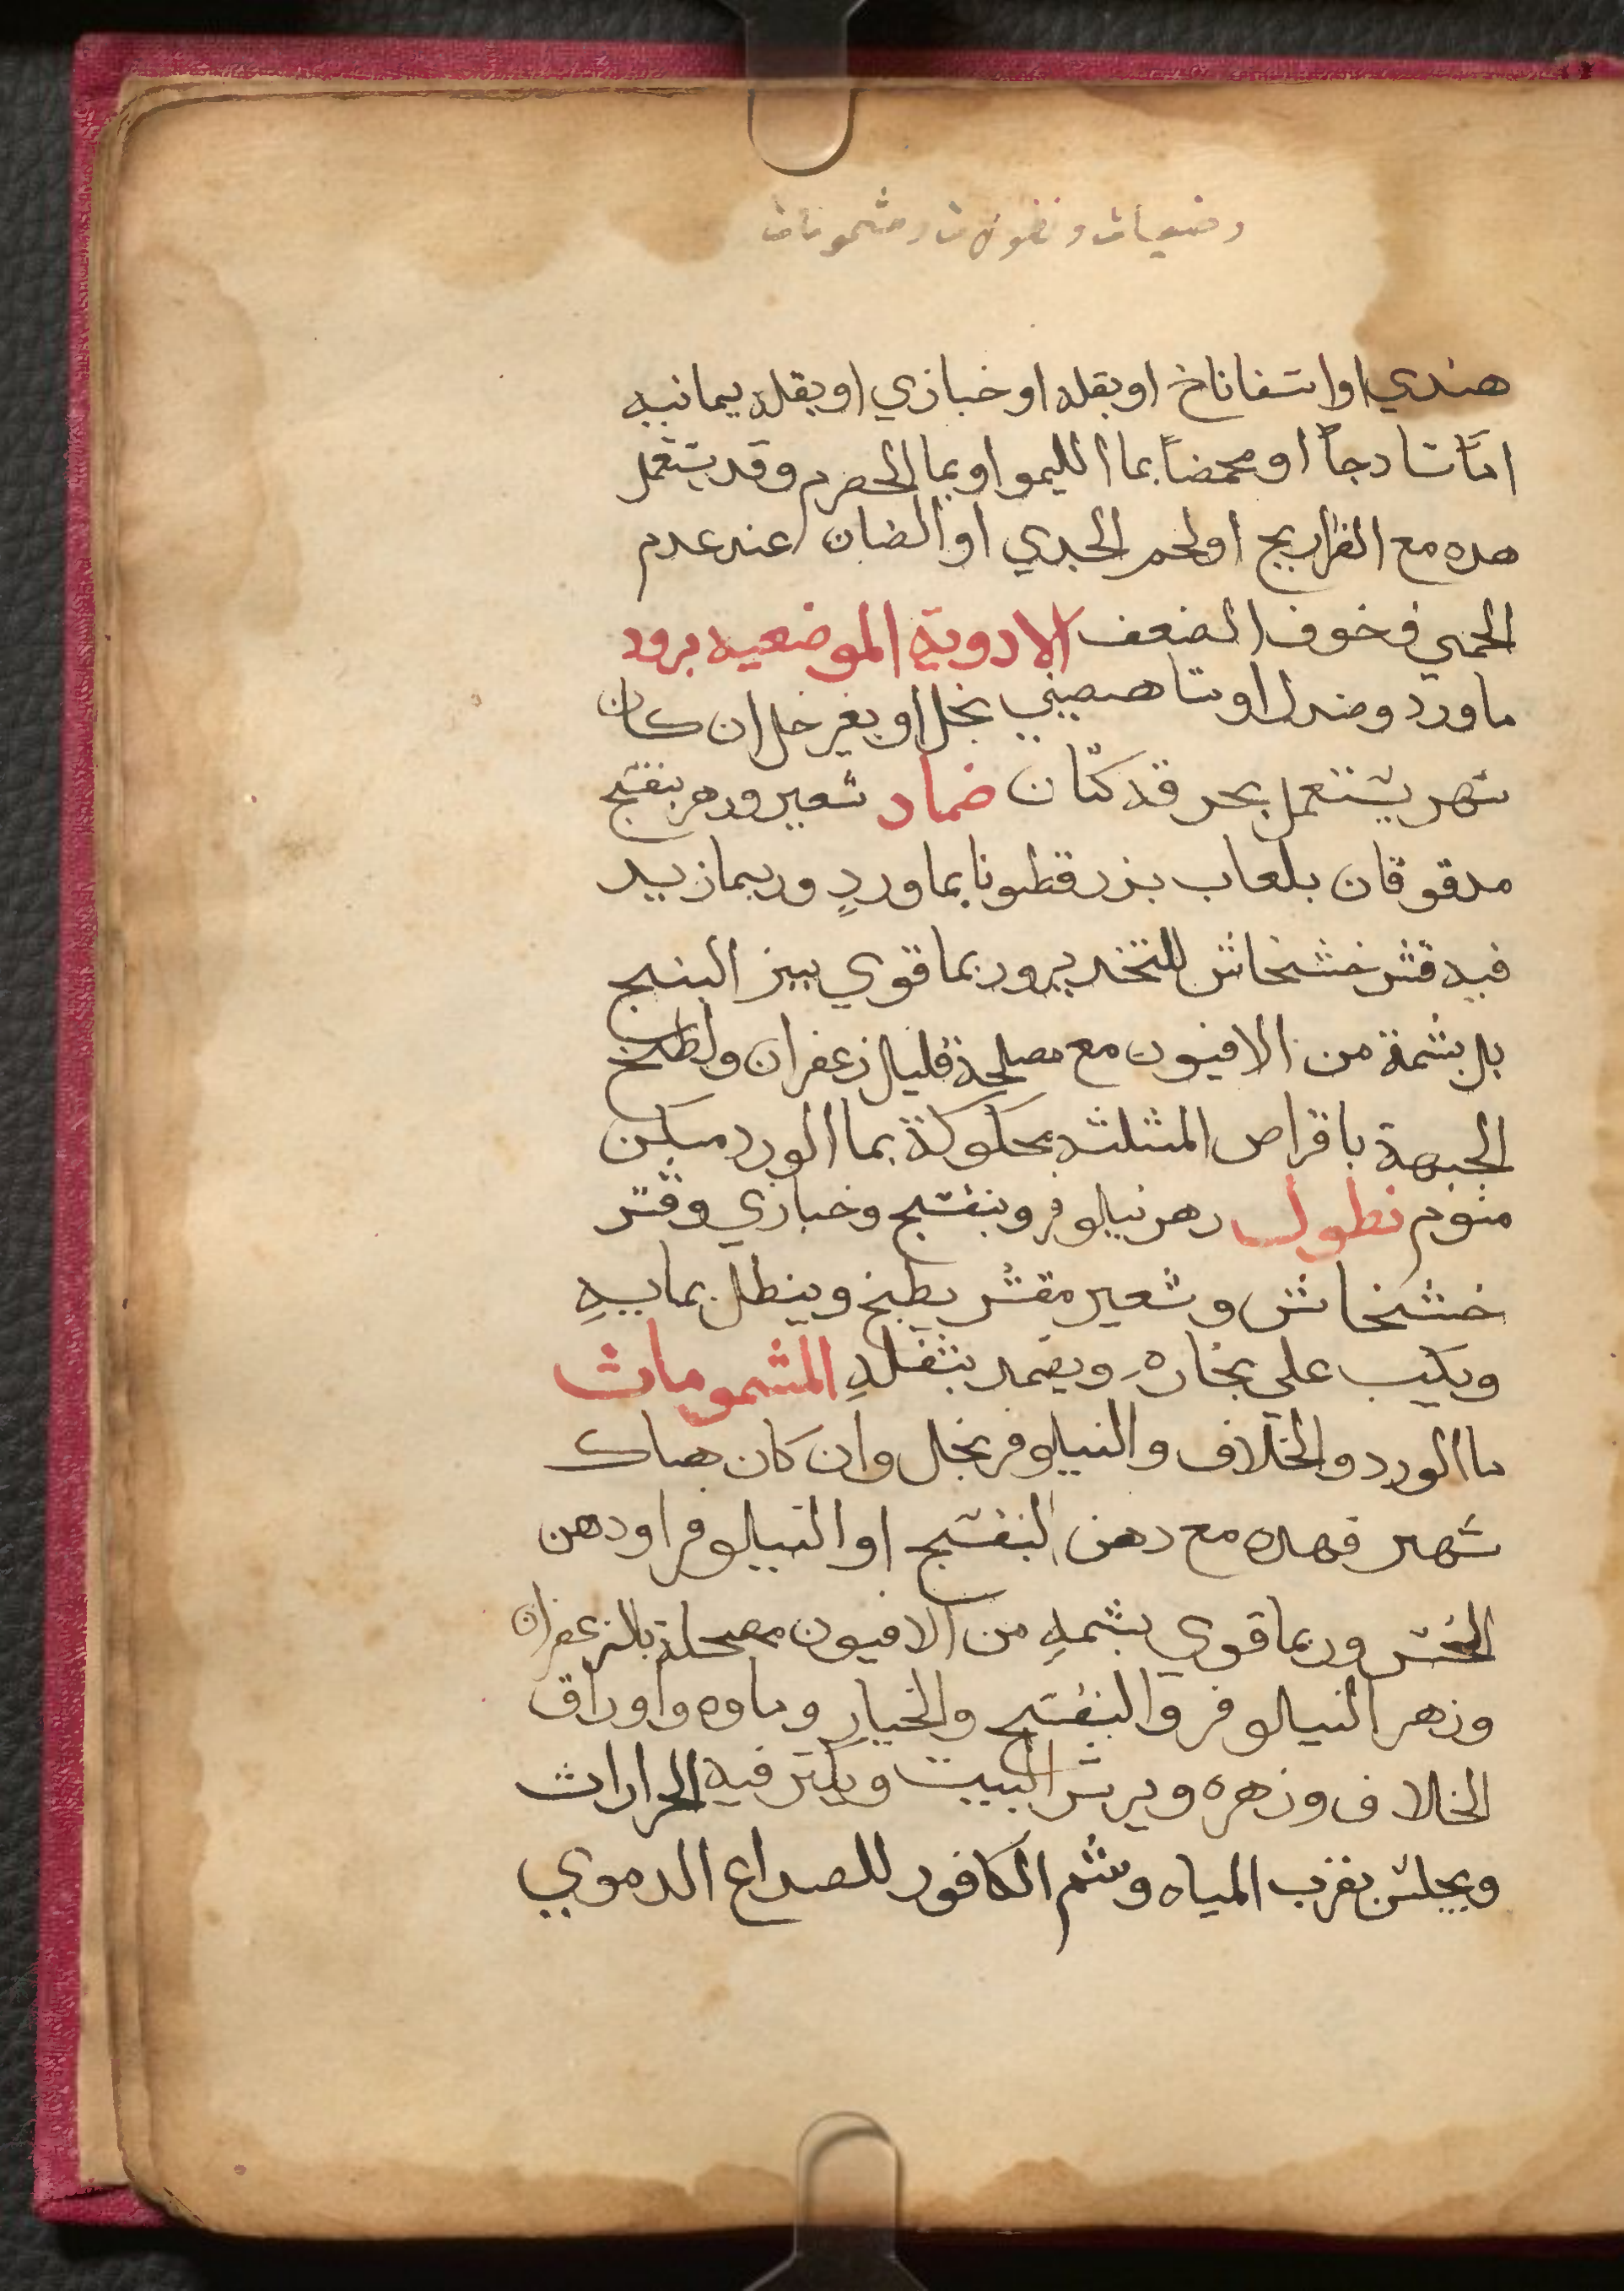 وضعيات ونطولات ومشمومات
هندي او اسفاناخ او بقله او خبازي او بقله يمانيه
امّا سادجاً او محمضاً بما الليمو او بما الحصرم وقد يستعمل
هده مع الفراريج او لحم الجدي او الضان عند عدم
الحمي وخوف الضعف الادوية الموضعيه برود
ماورد وصندل او بخل او بغير خل ان كان
سهر يستعمل بخرقة كتّان ضماد شعير وزهر بنفسج
مدقوقان بلعاب بزرقطونا بماوردٍ وربما زيد
فيه قشر خشخاش للتخدير وربما قوي ببزر البنج
بل بشمة من الافيون مع مصلحة قليل زعفران ولطخ
الجبهة باقراص المثلثه محكوكة بما الورد مسكن
منوم نطول زهر نيلوفر وبنفسج وخبازي وقشر
خشخاش وشعير مقشر يطبخ وينطل بمايهِ
ويكب علي بخاره ويضمد بثفله المشمومات
ما الورد والخلاف والنيلوفر بخل وان كان هناك
سهر فهده مع دهن البنفسج او النيلوفر او دهن
الخس وربما قوي بشمهِ من الافيون مصحلة بالزعفران
وزهر النيلوفر والبنفسج والخيار وماوه واوراق
الخلاف وزهره ويرش البيت ويكثر فيه الحرارات
ويجلس بقرب المياه وشم الكافور للصداع الدموي